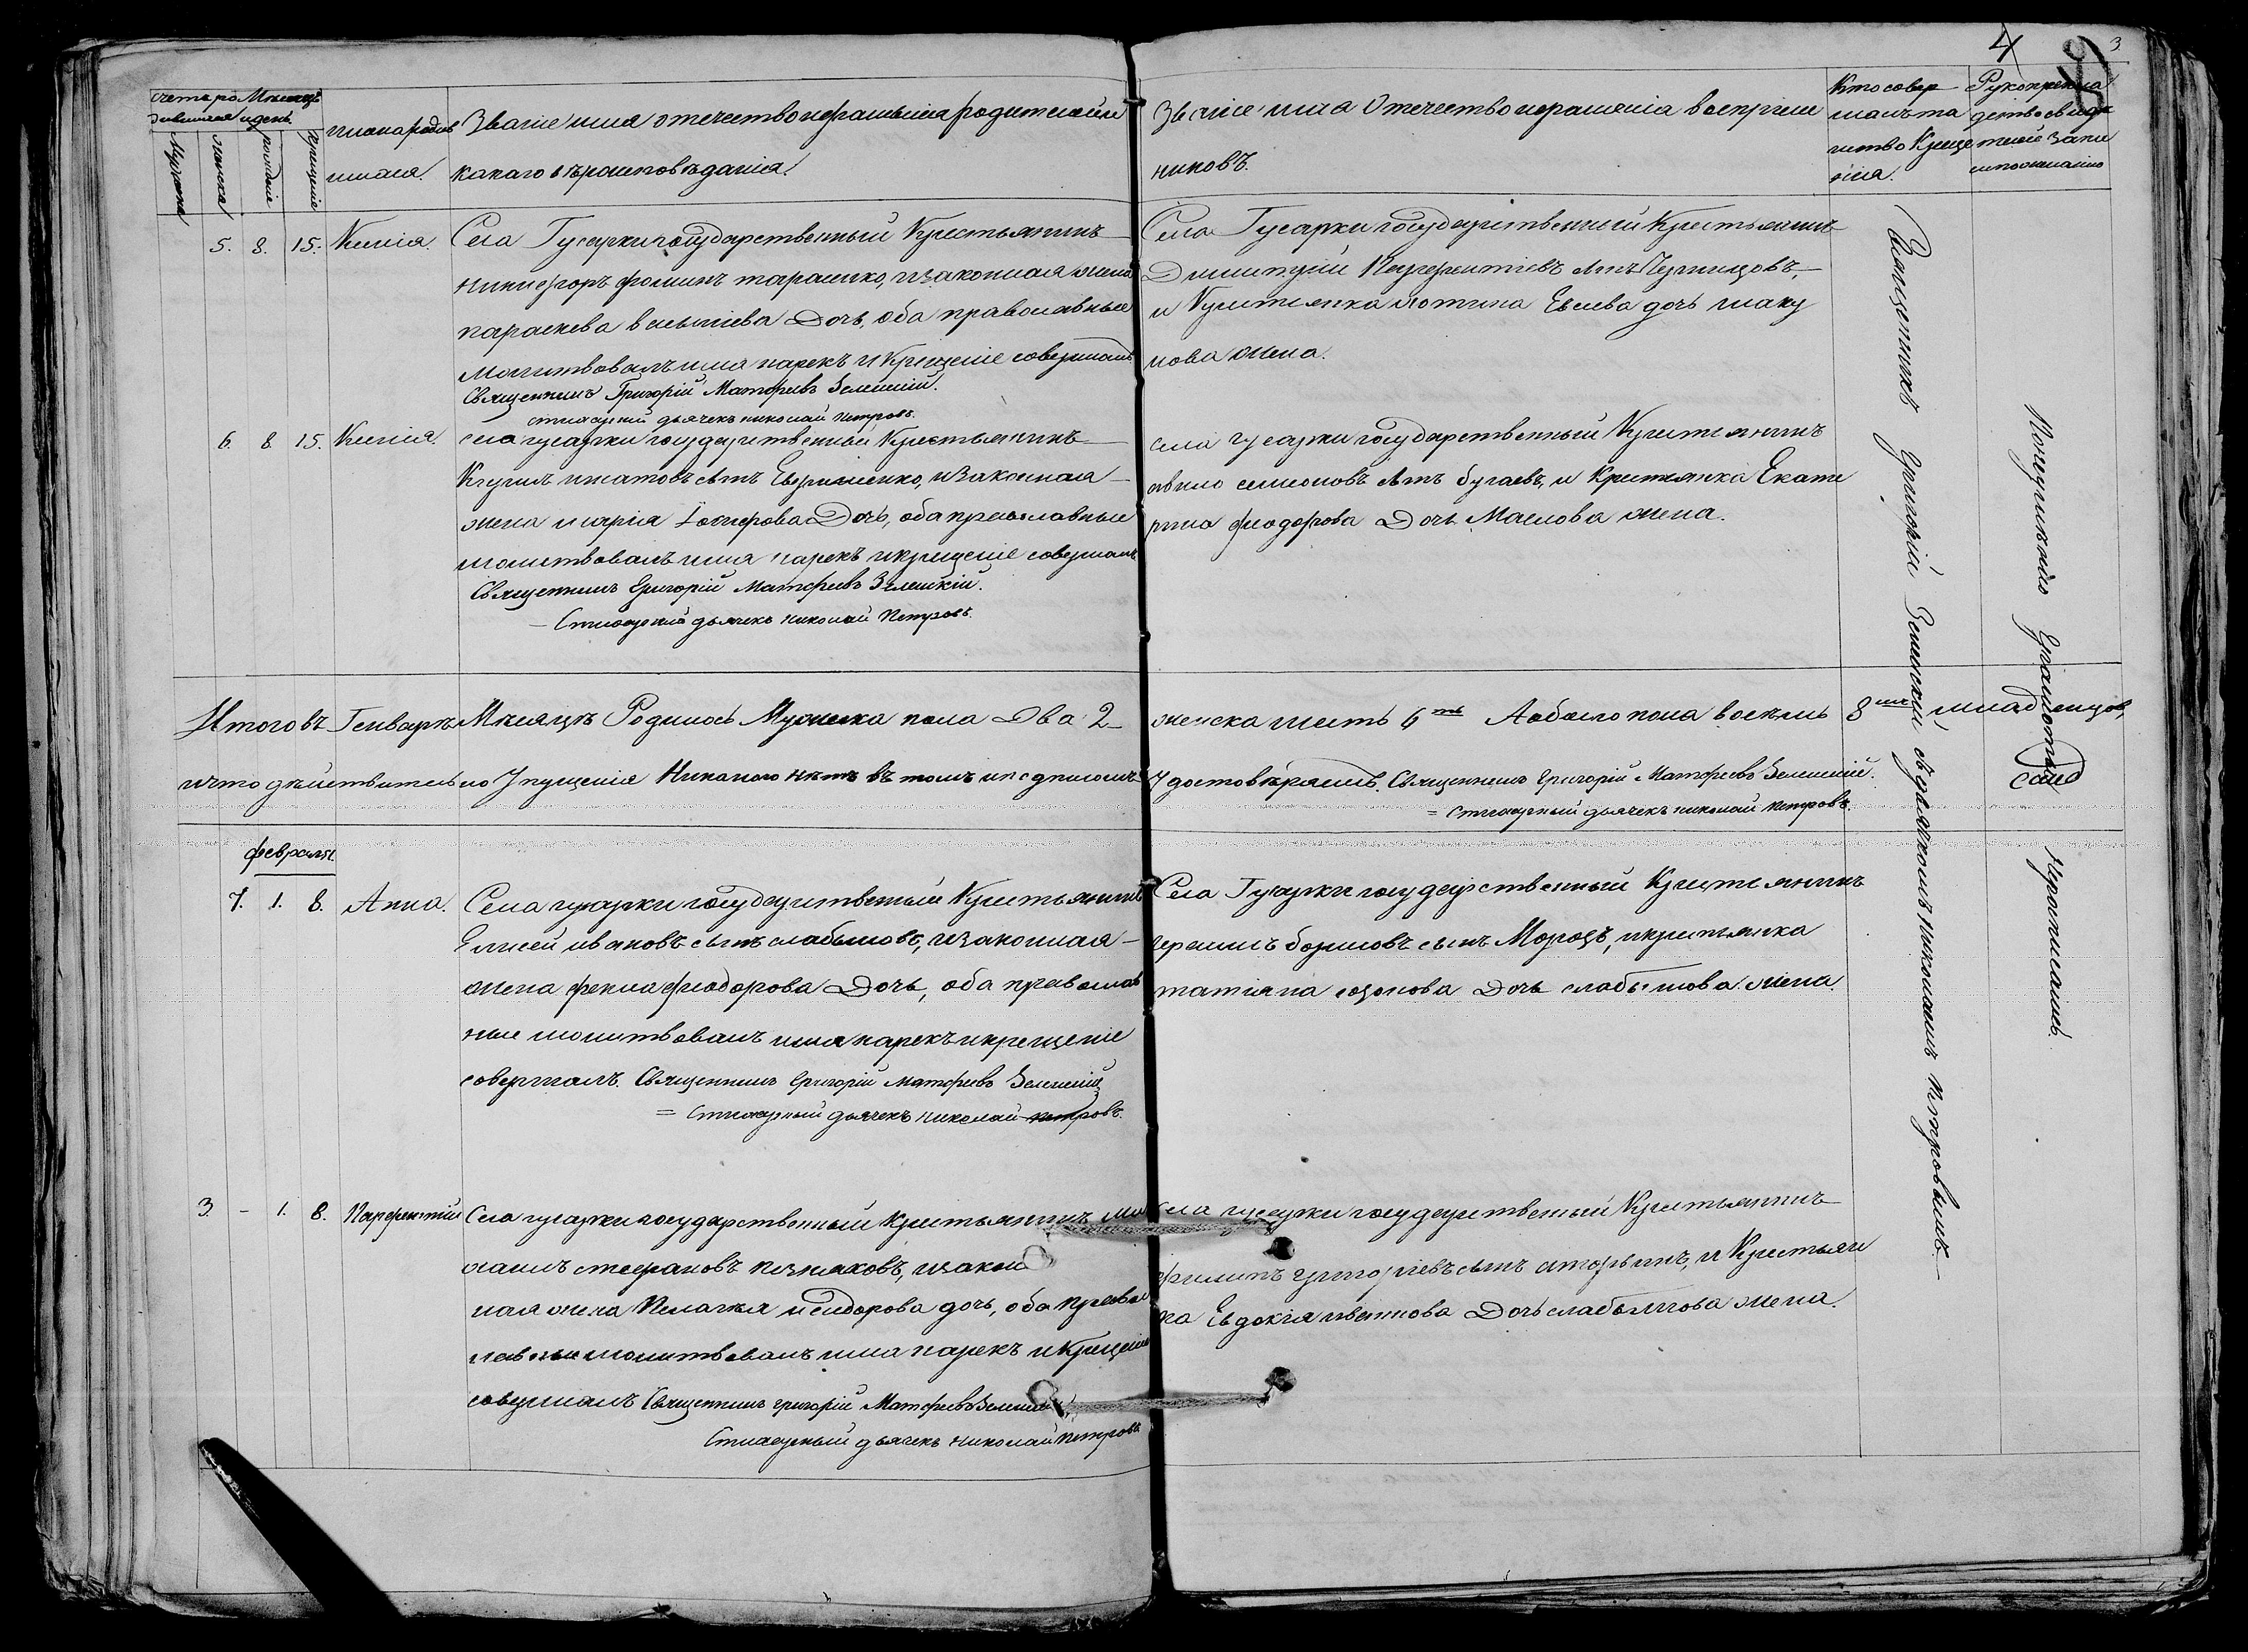 4
3
счетъ ро
дившихся
Мѣсяцъ
и день
Мужеска
Женска
рожденіе
крещеніе
имена родив
шихся.
Званіе имя отечество и фамилія родителей и
какаго вѣроисповѣданія.
Званіе имя Отечество и фамилія воспріем
никовъ.
Кто совер
шалъ та
инство Креще
нія.
Рукоприкла
дство свидѣ
телей записи
по желанію
5. 8. 15. Ксенія.
Села Гусарки государственный Крестьянинъ
никифоръ фоминъ тараненко, и законная жена
параскева васильева Дочь, оба православные
молитвовалъ имя нарекъ и Крещеніе совершалъ
Священникъ Григорій Матфеевъ Зеленскій.
стихарный дьячекъ николай Петровъ.
Села Гусарки государственный Крестьянинъ
Димитрій Парфентіевъ сынъ
и Крестьянка Евсеева дочь
нова жена.
6. 8. 15. Ксенія.
села гусарки государственный Крестьянинъ
Кирилъ игнатовъ сынъ Ефименко, и законная
жена марія Іосифова Дочь, оба православные
молитвовалъ имя нарекъ и крещеніе совершалъ
Священникъ Григорій Матфеевъ Зеленскій.
Стихарный дьячекъ николай Петровъ.
села гусарки государственный Крестьянинъ
семеоновъ сынъ бугаевъ, и Крестьянка Екате
рина феодорова Дочь Маслова жена.
Итого въ Генварѣ Мѣсяцѣ Родилось Мужеска пола Два 2
женска шесть 6ть А обоего пола восемь 8мь младенцов,
и что дѣйствительно Упущенія Никакого нѣтъ въ томъ и подписомъ
Удостовѣряемъ. Священникъ Григорій Матфеевъ Зеленскій.
= стихарный дьячекъ николай Петровъ.
февраль
7. 1. 8. Анна.
Села гусарки государственный Крестьянинъ
Елисей ивановъ сынъ слабышовъ, и законная
жена фекла феодорова Дочь, оба православ
ные молитвовалъ имя нарекъ и крещеніе
совершалъ. Священникъ Григорій Матфеевъ Зеленскій
= Стихарный дьячекъ николай петровъ.
Села Гусарки государственный Крестьянинъ
герасимъ борисовъ сынъ Морозъ, и крестьянка
татіяна созонова Дочь слабышова жена.
3. - 1. 8. Парфентій
Села гусарки государственный Крестьянинъ
стефановъ позняковъ, и закон
ная жена Пелагия исидорова дочь, оба право
славные молитвовалъ имя нарекъ и Крещеніе
совершалъ Священникъ григорій Матфеевъ Зеленскій,
Стихарный дьячекъ николай Петровъ
Села гусарки государственный Крестьянинъ
филипъ григоріевъ сынъ и Крестьян
ка Евдокія иванова Дочь слабышова жена.
Священникъ Григорій Зеленскій съ дьячкомъ николаемъ Петровымъ.
По неумѣнію Грамоты
сает
неподписались.